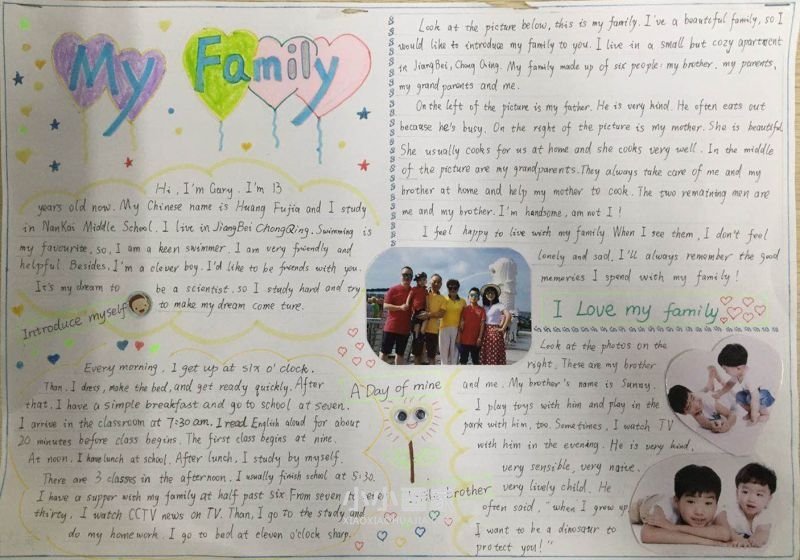 My Family
Hi, I'm Gary. I'm 13
years old now. My Chinese name is Huang Fujia and I study
in NanKai Middle School. I live in JiangBei ChongQing. Swimming is
my favourite, so, I am a keen swimmer. I am very friendly and
helpful. Besides, I'm a clever boy. I'd like to be friends with you.
It's my dream to be a scientist. so I study hard and try
to make my dream come ture.
Introduce myself
Every morning. I get up at six o'clock.
Than. I dress, make the bed, and get ready quickly. After
that. I have a simple breakfast and go to school at seven.
I arrive in the classroom at 7:30 am. I read English aloud for about
20 minutes before class begins. The first class begins at nine.
At noon. I have lunch at school. After lunch, I study by myself.
There are 3 classes in the afternoon. I usually finish school at 5:30.
I have a supper with my family at half past six. From seven
thirty. I watch CCTV news on TV. Than, I go to the study and
do my homework. I go to bed at eleven o'clock sharp.
A Day of mine
Look at the picture below, this is my family. I've a beautiful family, so I
would like to introduce my family to you. I live in a small but cozy apartment
in JiangBei, Chong Qing. My family made up of six people: my brother. my parents,
my grandparents and me.
On the left of the picture is my father. He is very kind. He often eats out
because he's busy. On the right of the picture is my mother. She is beautiful.
She usually cooks for us at home and she cooks very well. In the middle
of the picture are my grandparents. They always take care of me and my
brother at home and help my mother to cook. The two remaining men are
me and my brother. I'm handsome, am not I!
I feel happy to live with my family. When I see them, I don't feel
lonely and sad. I'll always remember the good
memories I spend with my family!
I Love my family
Look at the photos on the
right. These are my brother
and me. My brother's name is Sunny.
I play toys with him and play in the
park with him, too. Sometimes, I watch TV
with him in the evening. He is very kind,
very sensible, very naive.
very lively child. He
often said, "when I grew up
I want to be a dinosaur to
protect you!"
little brother
XIAOXIAOHUAJIA